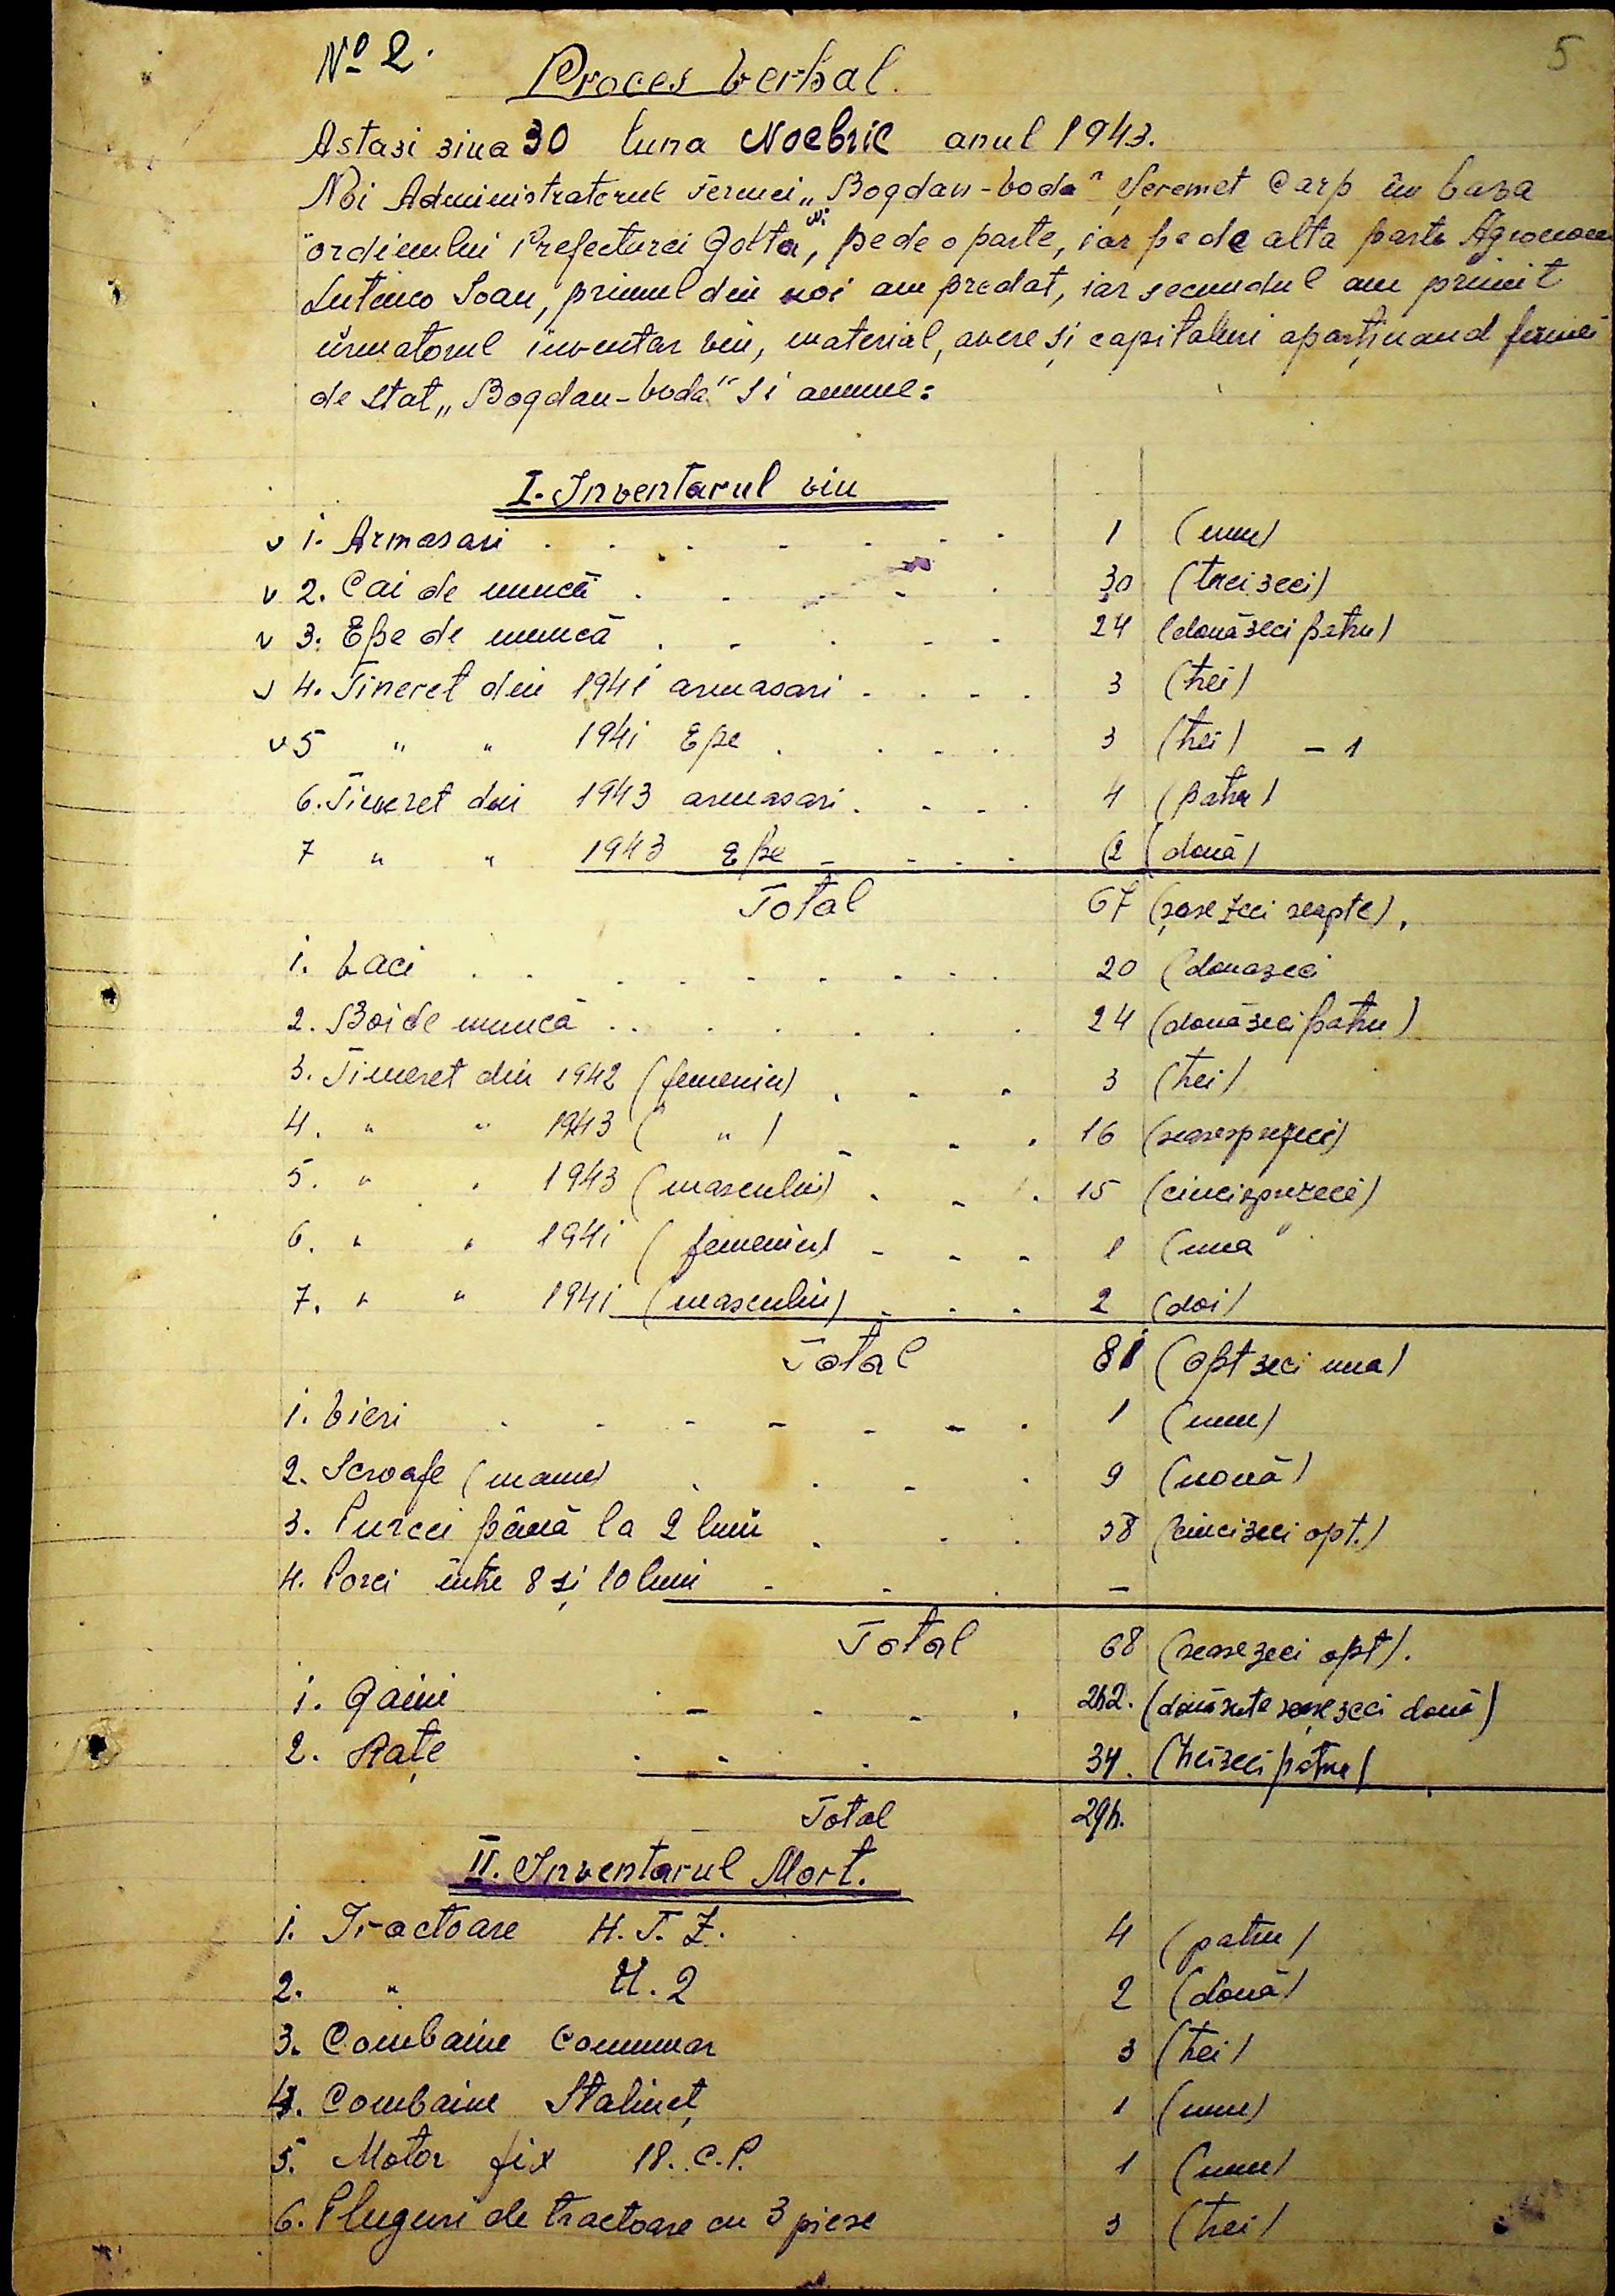 5
No 2.
Proces Verbal.
Astasi siua 30 luna Noebrie anul 1943.
Noi Administratorul Fermei „Bogdan-Voda" Șeremet Carp în baza
ordinului Prefecturei Golta, pe de o parte, iar pe de alta parte Agronom
Lutenco Ioan, primul din noi am predat, iar secundul am primit
următorul inventar viu, material, avere și capitaluri aparținand fermei
de Stat „Bogdan-Voda" si anume:
I. Inventarul viu
v 1. Armasari 1 (unu)
v 2. Cai de muncă 30 (trei zeci)
v 3. Epe de muncă 24 (două zeci patru)
v 4. Tineret din 1941 armasari 3 (trei)
v 5 " " 1941 Epe 3 (trei) - 1
6. Tineret din 1943 armasari 4 (patru)
7 " " 1943 Epe 2 (două)
Total 67 (șase zeci seapte).
1. Vaci 20 (doua zeci
2. Boi de muncă 24 (două zeci patru)
3. Tineret din 1942 (femenin) 3 (trei)
4. " " 1943 ( " ) 16 (seasesprezeci)
5. " " 1943 (masculin) 15 (cincisprezece)
6. " " 1941 (femenin) 1 (una"
7. " " 1941 (masculin) 2 (doi)
Total 81 (opt zeci una)
1. Vieri 1 (unu)
2. Scroafe (mame) 9 (nouă)
3. Purcei până la 2 luni 58 (cinci zeci opt.)
4. Porci între 8 și 10 luni —
Total 68 (sease zeci opt).
1. Gaini 262. (două sute sease zeci două)
2. Rațe 34. (trei zeci patru)
Total 296.
II. Inventarul Mort.
1. Tractoare H.T.Z. 4 (patru)
2. " U.2 2 (două)
3. Combaine Communar 3 (trei)
4. Combaine Stalineț 1 (unu)
5. Motor fix 18. C.P. 1 (unu)
6. Pluguri de tractoare cu 3 piese 3 (trei)